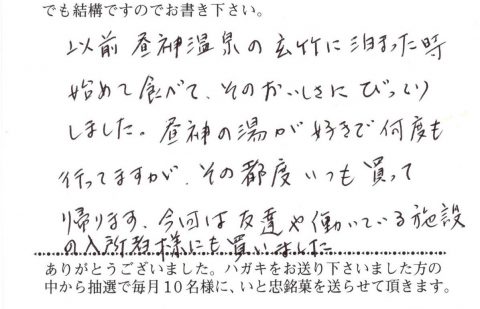 でも結構ですのでお書き下さい。
以前昼神温泉の玄竹に泊まった時
始めて食べて、そのおいしさにびっくり
しました。昼神の湯が好きで何度も
行ってますが、その都度いつも買って
帰ります、今回は友達や働いている施設
の入所者様にも買いました
ありがとうございました。ハガキをお送り下さいました方の
中から抽選で毎月10名様に、いと忠銘菓を送らせて頂きます。